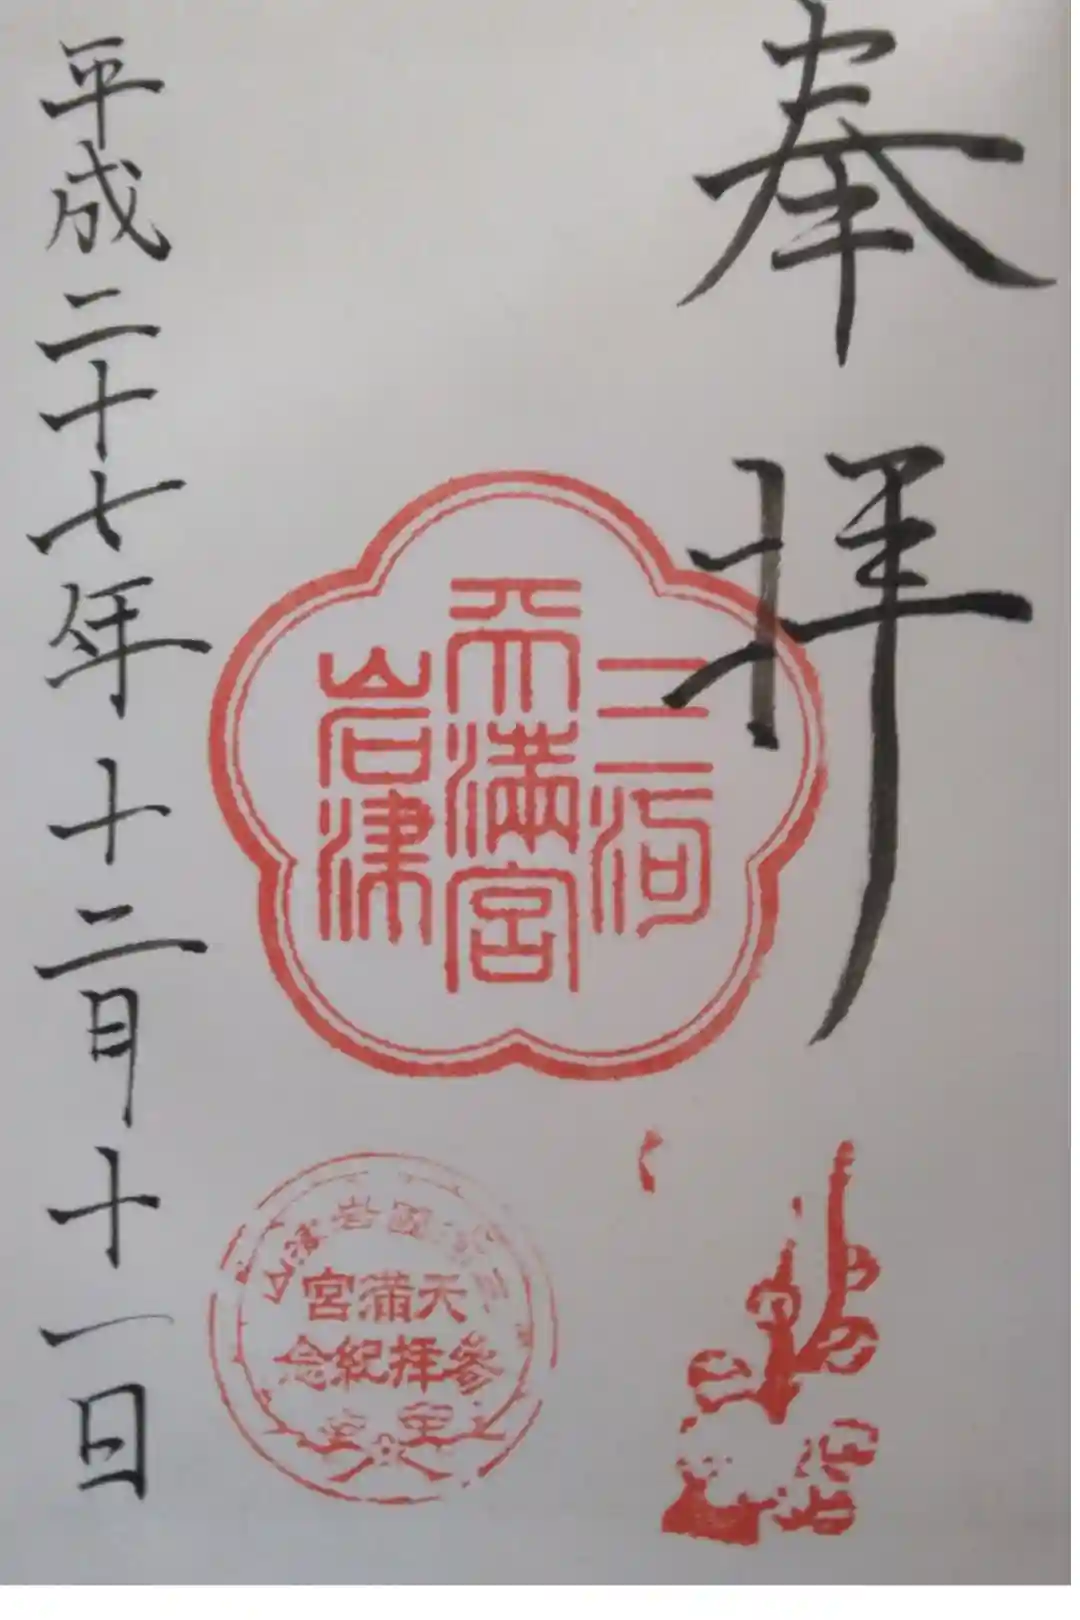 奉拝
三河
天満宮
岩津
天満宮
参拝紀念
平成二十七年十二月十一日